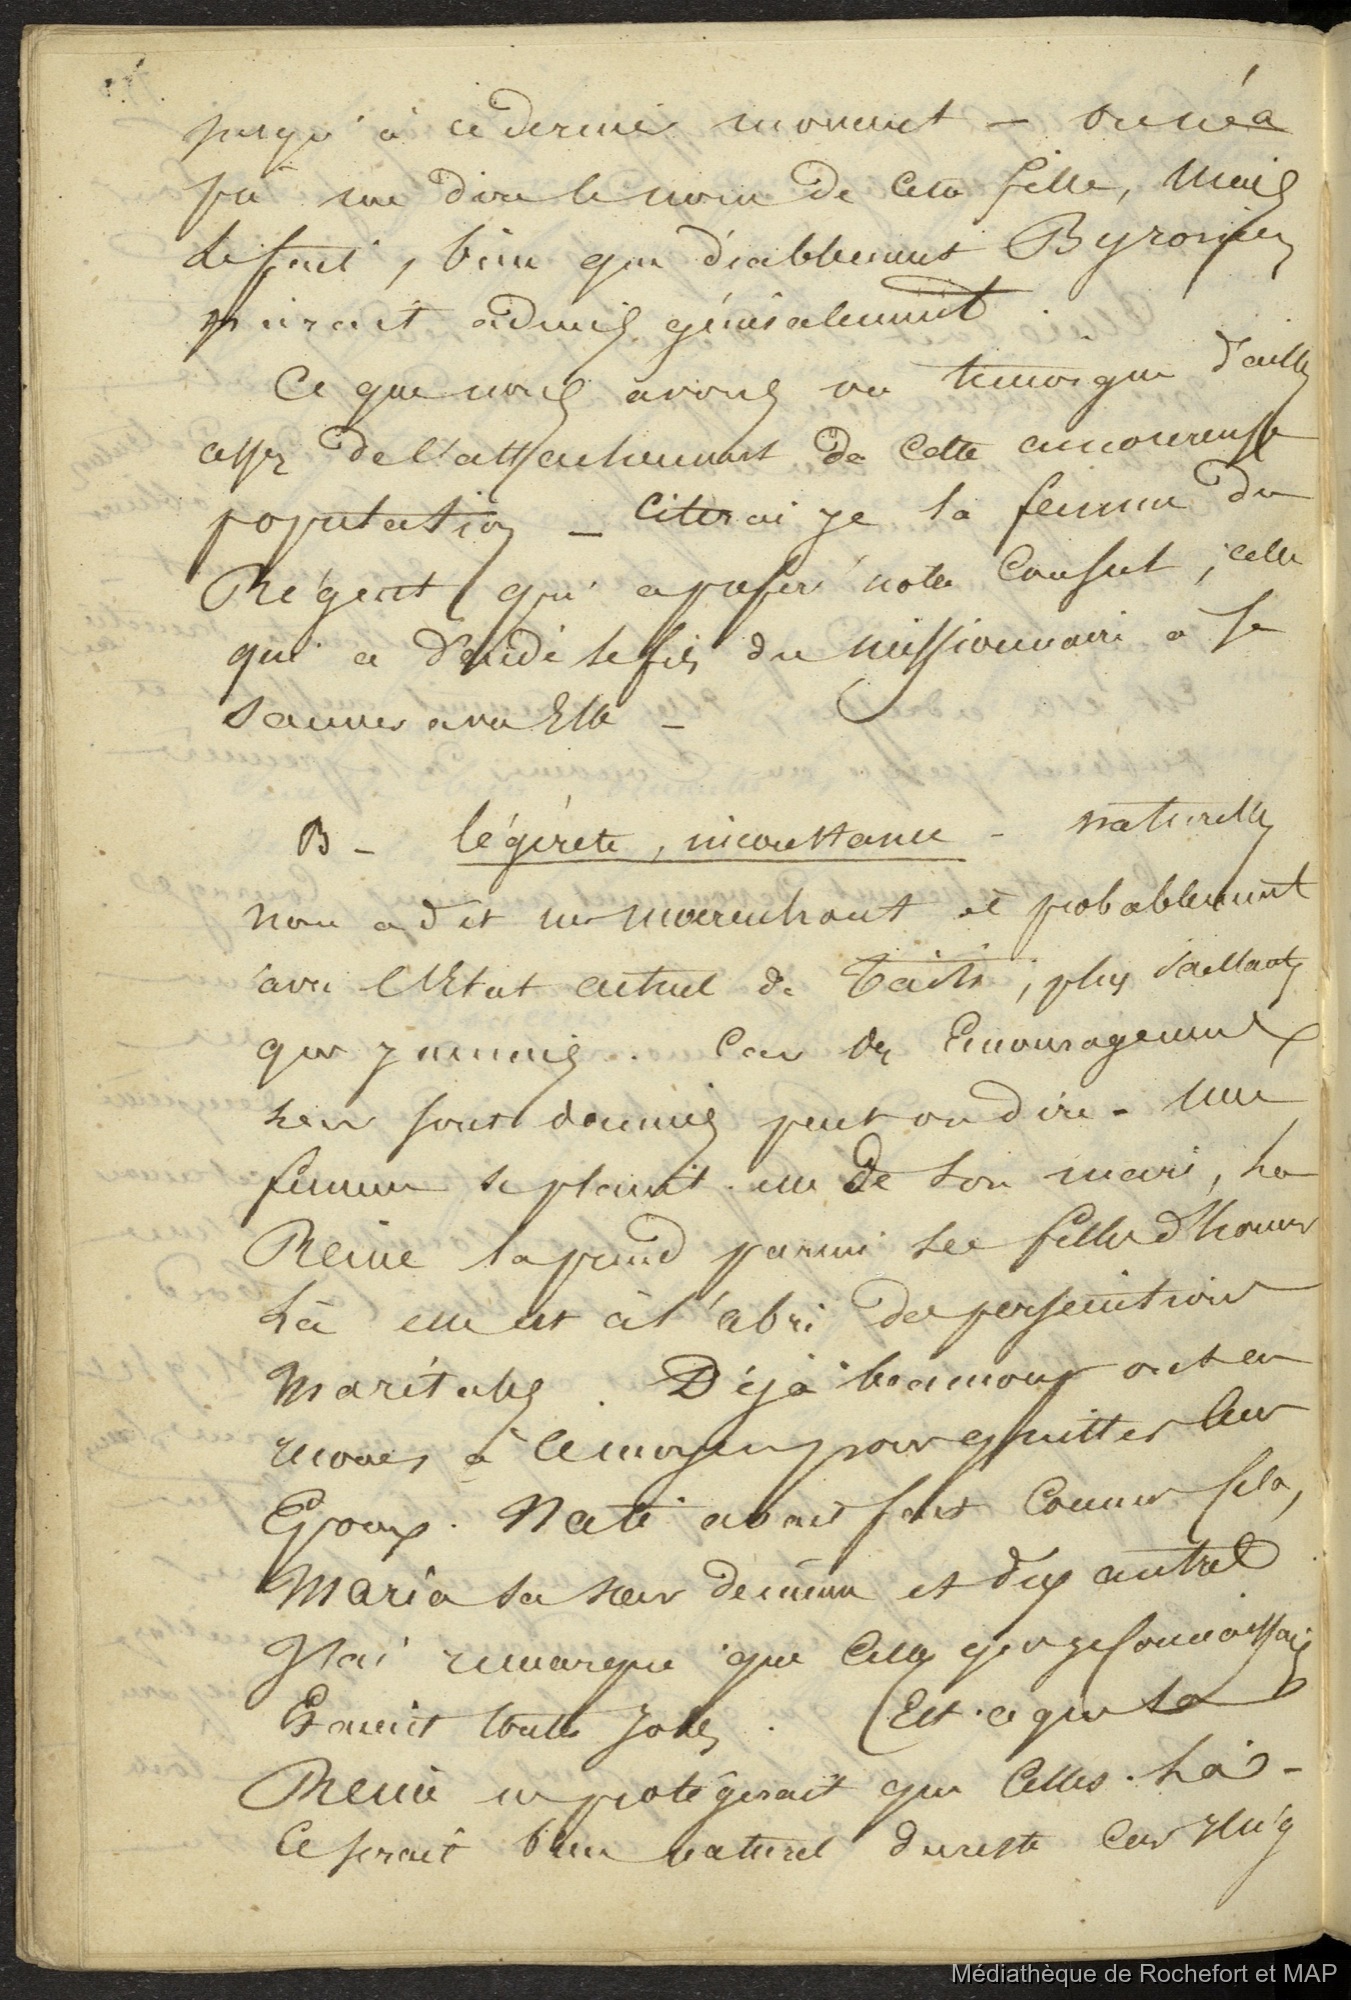 jusqu'à ce dernier moment — on n'a
pu me dire le nom de cette fille, mais
le fait, bien que diablement Byronien
paraît admis généralement.
Ce que nous avons vu témoigne d'aill
assez de l'attachement de cette amoureuse
population — Citerai je la femme du
Régent qui a préféré notre Consul, celle
qui a décidé le fils du missionnaire a se
sauver avec Elle —
B — légèreté, inconstance — naturelles
nous a dit un moerenhout et probablement
avec l'Etat actuel de Taiti, plus saillants
que jamais. Car des Encouragements
leur sont donnés peut on dire — Une
femme se plaint-elle de son mari, la
Reine la prend parmi ses filles d'honneur
Là elle est à l'abri des persécutions
Maritales. Déjà beaucoup ont eu
recours à ce moyen pour quitter leur
Epoux. Nati avait fait comme cela,
Maria sa sœur de même et dix autres
J'ai remarqué que celles que je connaissais
Etaient toutes Jolies. (Est-ce que la
Reine ne protégerait que Celles-là —
Ce serait bien naturel du reste Car